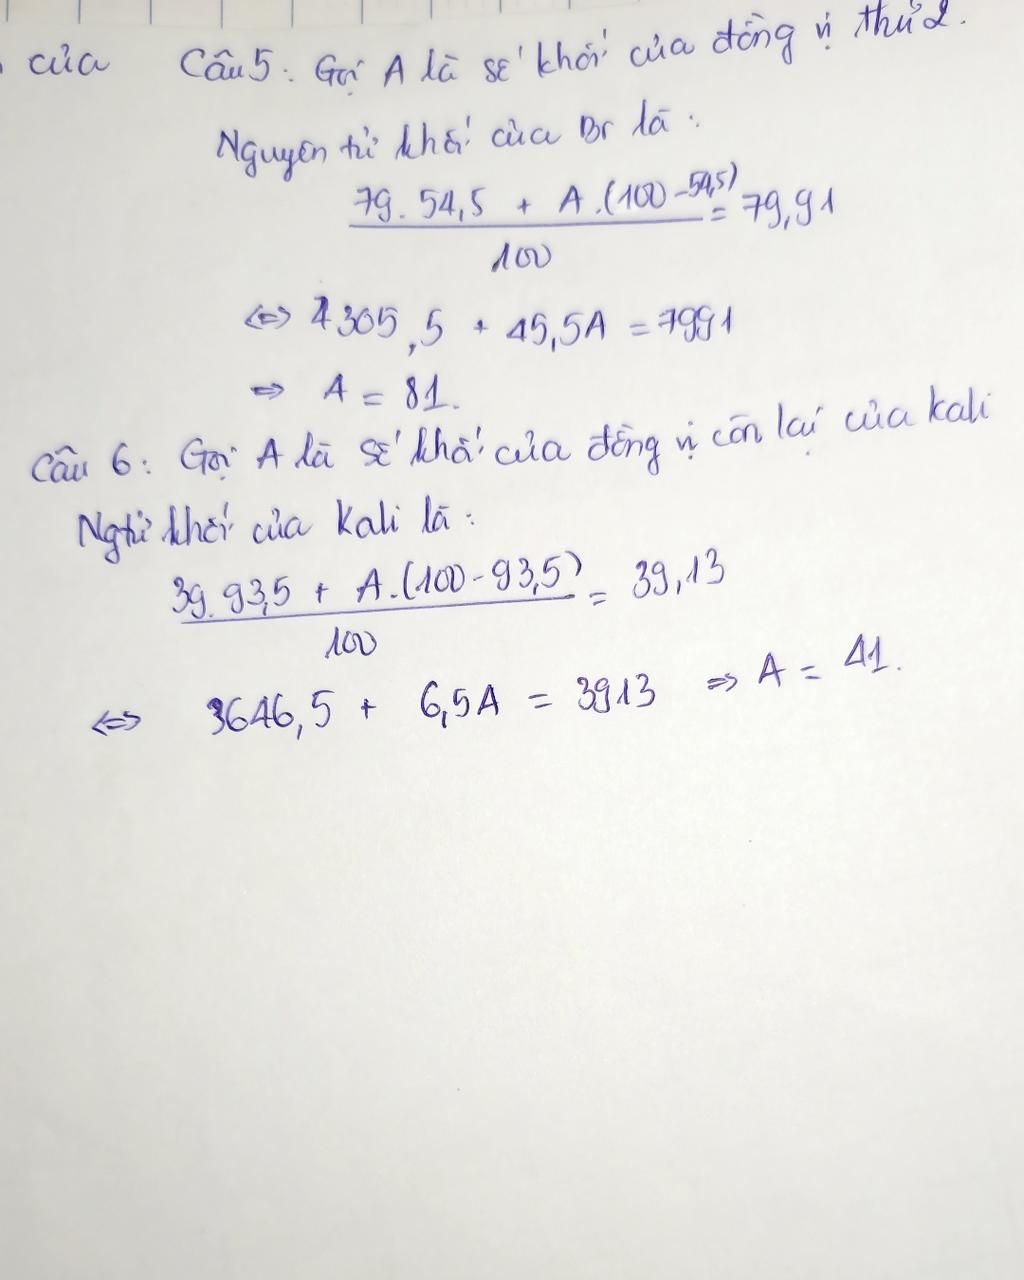 của
Câu 5: Gọi A là số khối của đồng vị thứ 2.
Nguyên tử khối của Br là:
79. 54,5 + A.(100-54,5) = 79,91
100
⇔ 4305,5 + 45,5A = 7991
⇒ A = 81.
Câu 6: Gọi A là số khối của đồng vị còn lại của kali
Ngtử khối của Kali là:
39. 93,5 + A.(100-93,5) = 39,13
100
⇔ 3646,5 + 6,5A = 3913 ⇒ A = 41.